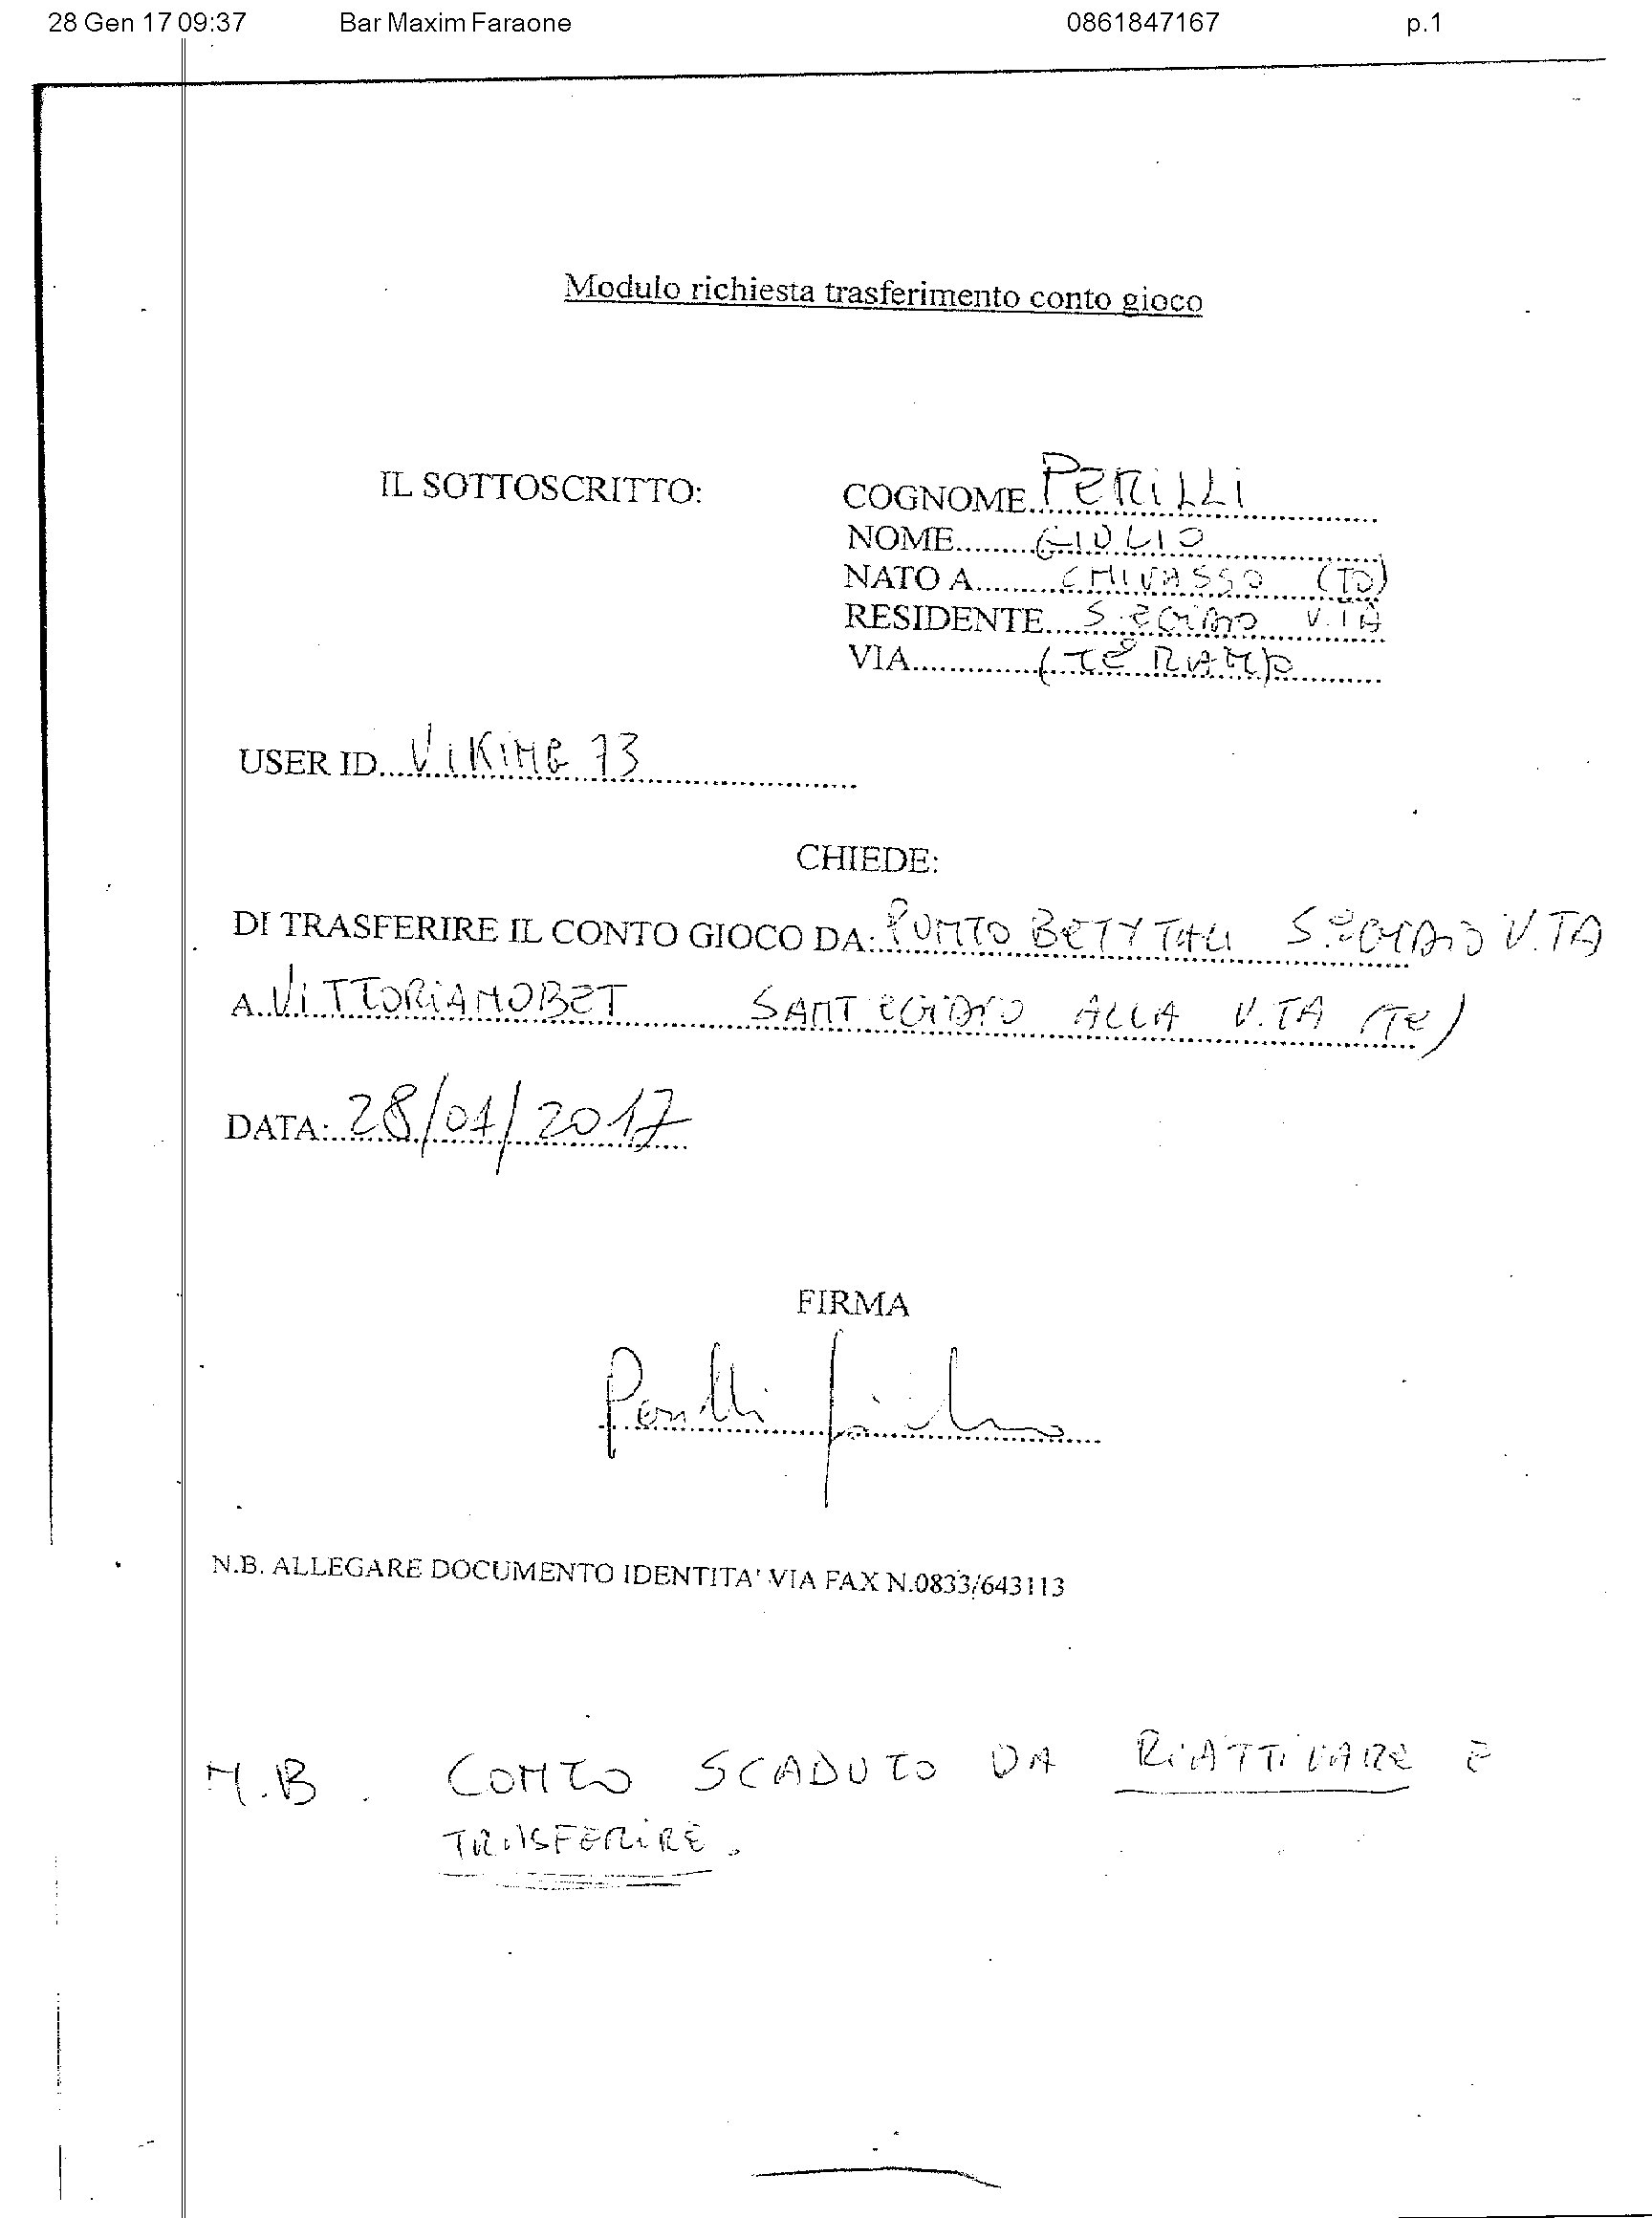 28 Gen 17 09:37 Bar Maxim Faraone 0861847167 p.1
Modulo richiesta trasferimento conto gioco
IL SOTTOSCRITTO: COGNOME PERILLI
NOME GIULIO
NATO A CHIVASSO (TO)
RESIDENTE S. EGIDIO V.TA
VIA (TERAMO)
USER ID VIKING 73
CHIEDE:
DI TRASFERIRE IL CONTO GIOCO DA: PUNTO BETYTALI S. EGIDIO V.TA
A VITTORIANOBET SANT EGIDIO ALLA V.TA (TE)
DATA: 28/01/2017
FIRMA
Perilli Giulio
N.B. ALLEGARE DOCUMENTO IDENTITA' VIA FAX N.0833/643113
N.B. CONTO SCADUTO DA RIATTIVARE E
TRASFERIRE.